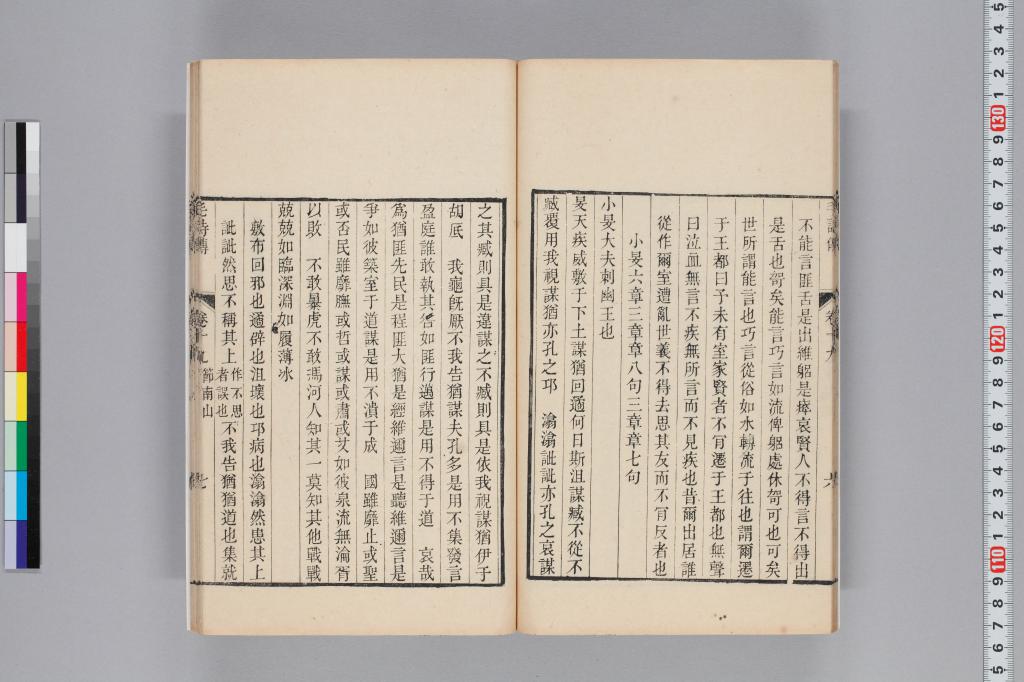 不能言匪舌是出維躬是瘁哀賢人不得言不得出
是舌也哿矣能言巧言如流俾躬處休哿可也可矣
世所謂能言也巧言從俗如水轉流于往也謂爾遷
于王都曰予未有室家賢者不肎遷于王都也無聲
曰泣血無言不疾無所言而不見疾也昔爾出居誰
從作爾室遭亂世義不得去思其友而不肎反者也
小旻六章三章章八句三章章七句
小旻大夫刺幽王也
旻天疾威敷于下土謀猶回遹何日斯沮謀臧不從不
臧覆用我視謀猶亦孔之邛　潝潝訿訿亦孔之哀謀
之其臧則具是違謀之不臧則具是依我視謀猶伊于
胡底　我龜旣厭不我告猶謀夫孔多是用不集發言
盈庭誰敢執其咎如匪行邁謀是用不得于道　哀哉
爲猶匪先民是程匪大猶是經維邇言是聽維邇言是
爭如彼築室于道謀是用不潰于成　國雖靡止或聖
或否民雖靡膴或哲或謀或肅或艾如彼泉流無淪胥
以敗　不敢暴虎不敢馮河人知其一莫知其他戰戰
兢兢如臨深淵如履薄冰
敷布回邪也遹辟也沮壞也邛病也潝潝然患其上
訿訿然思不稱其上作不思者誤也不我告猶猶道也集就
毛詩傳　卷十九　節南山　七